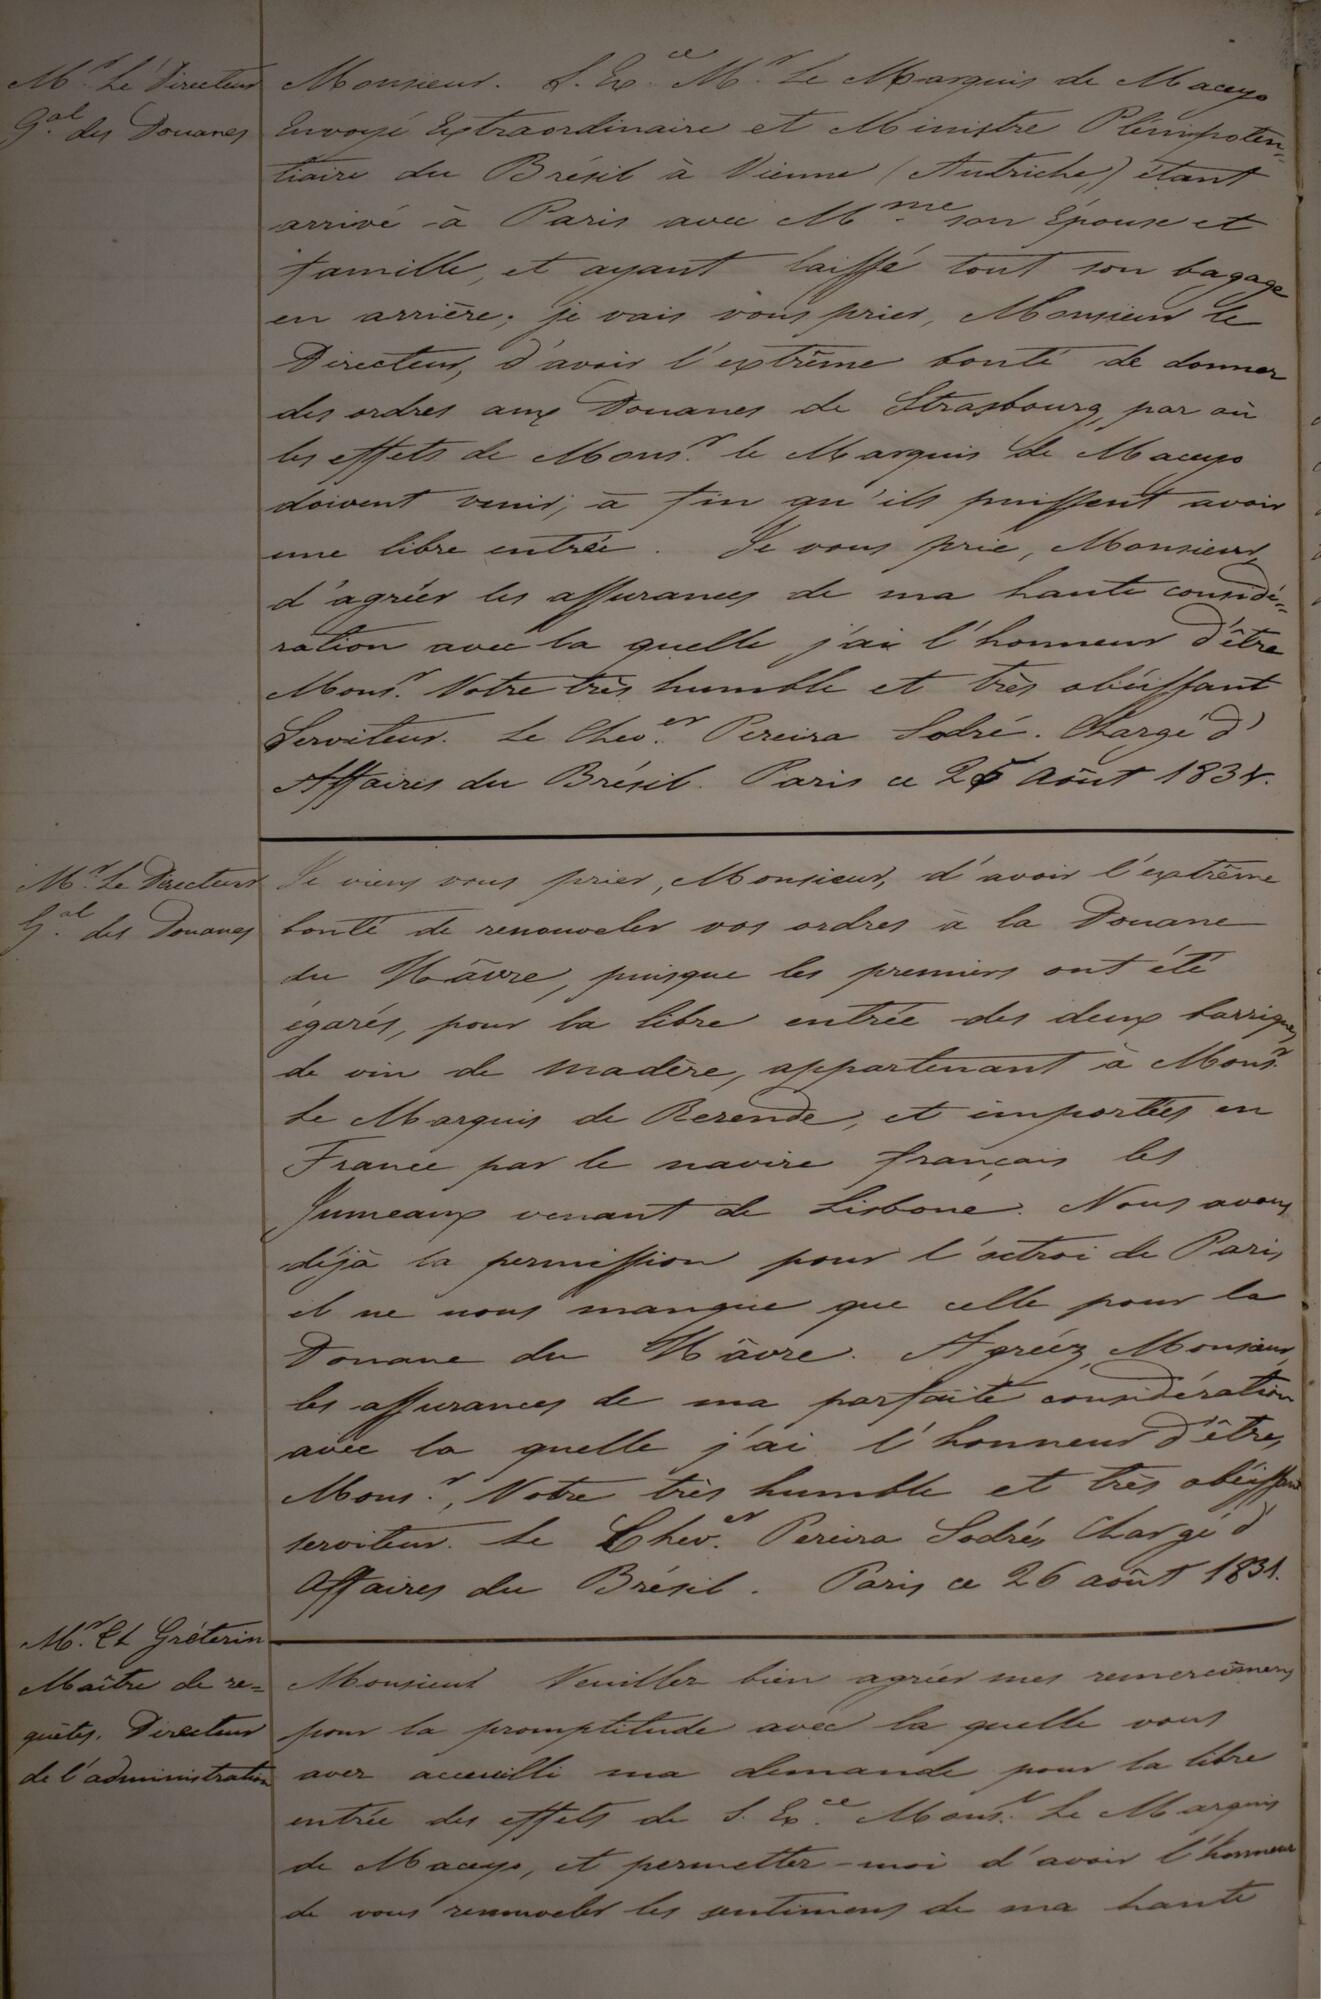 Mr. Le Directeur
Gal. des Douanes
Monsieur. S. Exce. Mr. Le Marquis de Maceyo
Envoyé Extraordinaire et Ministre Plénipoten=
tiaire du Brésil à Vienne (Autriche,) étant
arrivé à Paris avec Mme. son Épouse et
famille, et ayant laissé tout son bagage
en arrière; je vais vous prier, Monsieur le
Directeur, d'avoir l'extrême bonté de donner
des ordres aux Douanes de Strasbourg, par où
les effets de Monsr. le Marquis de Maceyo
doivent venir, à fin qu'ils puissent avoir
une libre entrée. Je vous prie, Monsieur,
d'agréer les assurances de ma haute considé=
ration avec la quelle j'ai l'honneur d'être
Monsr. Votre très humble et très obéissant
Serviteur. Le Chever. Pereira Sodré. Chargé d'
Affaires du Brésil. Paris ce 25 Août 1831.
Mr. Le Directeur
Gal. des Douanes
Je viens vous prier, Monsieur, d'avoir l'extrême
bonté de renouveler vos ordres à la Douane
du Hâvre, puisque les premiers ont été
égarés, pour la libre entrée des deux barriques
de vin de Madère, appartenant à Monsr.
Le Marquis de Rezende, et importées en
France par le navire français les
Jumeaux venant de Lisbone. Nous avons
déjà la permission pour l'octroi de Paris
il ne nous manque que celle pour la
Douane du Hâvre. Agréez, Monsieur,
les assurances de ma parfaite considération
avec la quelle j'ai l'honneur d'être,
Monsr., Votre très humble et très obéissant
serviteur. Le Chever. Pereira Sodré, Chargé d'
Affaires du Brésil. Paris ce 26 août 1831.
Mr. Th Gréterin
Maître de re=
quêtes. Directeur
de l'administration
Monsieur Veuillez bien agréer mes remercîmens
pour la promptitude avec la quelle vous
avez accueilli ma demande pour la libre
entrée des effets de S. Exce. Monsr. Le Marquis
de Maceyo, et permettez-moi d'avoir l'honneur
de vous renouveler les sentimens de ma haute